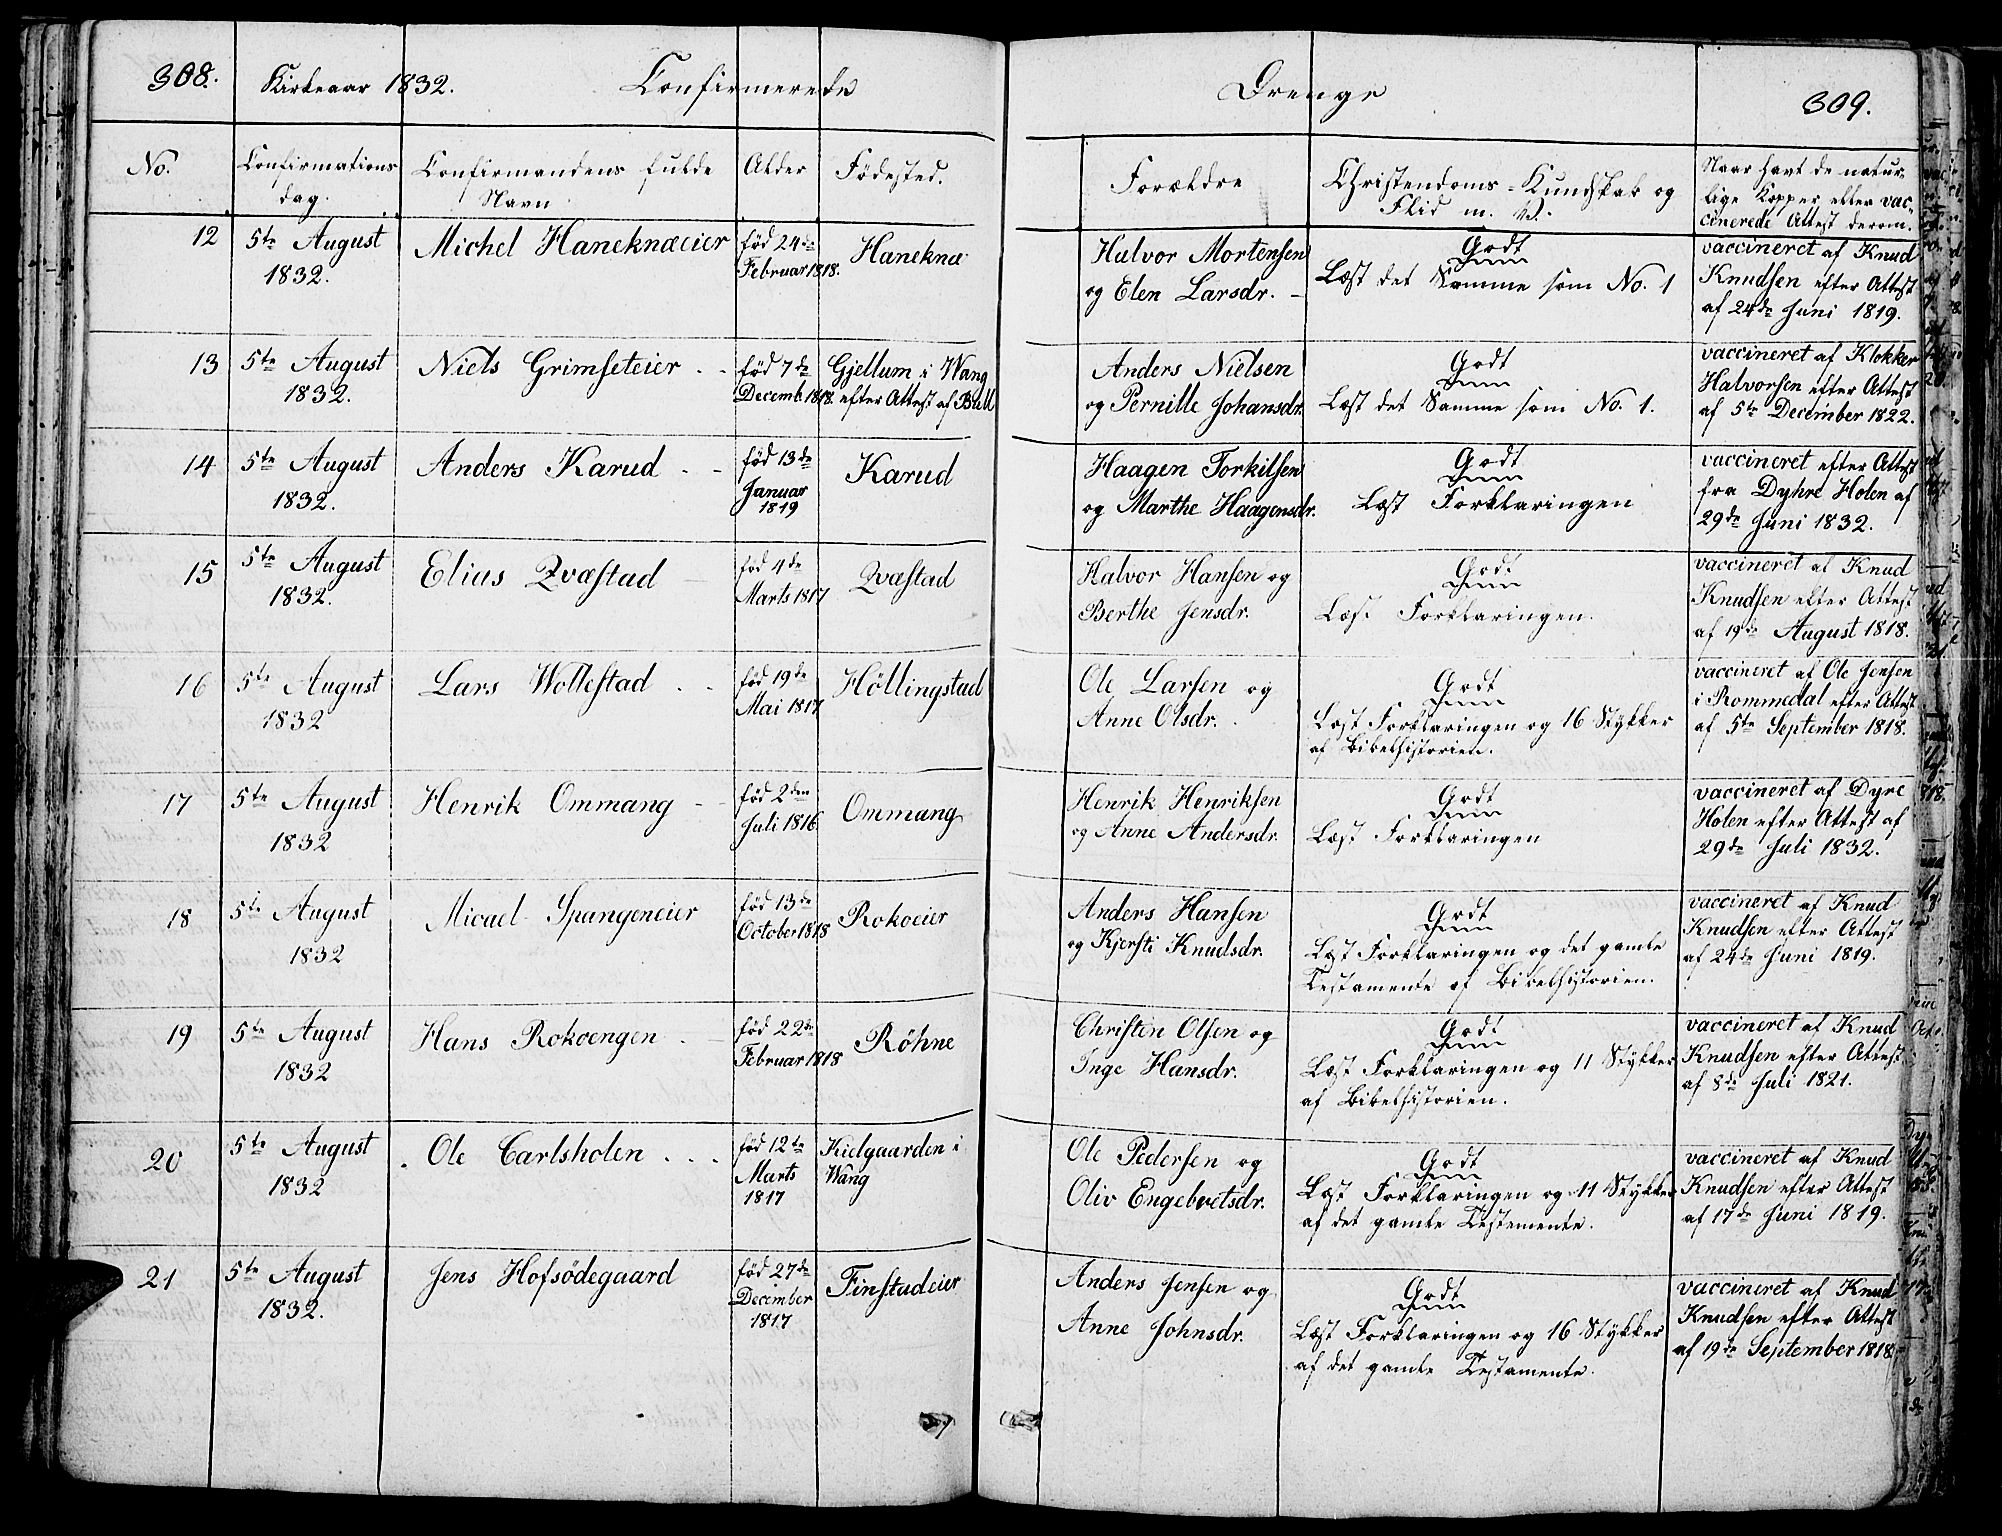 308. Kirkeaar 1832. Confirmerede Drenge 309.
No. Confirmations dag. Confirmandens fulde Navn Alder Fødested. Forældre Christendoms-Kundskab og Flid m. V. Naar havt de naturlige Kopper eller vaccinerede Attest derom.
12 5te August 1832. Michel Haneknæeier fød 24de Februar 1818. Haneknæ
Halvor Mortensen og Elen Larsdr. Godt Læst det Samme som No. 1 vaccineret af Knud Knudsen efter Attest af 24de Juni 1819.
13 5te August 1832. Niels Grimseteier fød 7de Decemb. 1818. Gjellum i Wang efter Attest af Bull
Anders Nielsen og Pernille Johansdr. Godt Læst det Samme som No. 1. vaccineret af Klokker Halvorsen efter Attest af 5te December 1822.
14 5te August 1832. Anders Karud fød 13de Januar 1819 Karud
Haagen Torkilsen og Marthe Haagensdr. Godt Læst Forklaringen vaccineret efter Attest fra Dyhre Holen af 29de Juni 1832.
15 5te August 1832. Elias Qvæstad fød 4de Marts 1817 Qvæstad
Halvor Hansen og Berthe Jensdr. Godt Læst Forklaringen. vaccineret af Knud Knudsen efter Attest af 19de August 1818.
16 5te August 1832 Lars Wollestad fød 19de Mai 1817 Höllingstad
Ole Larsen og Anne Olsdr. Godt Læst Forklaringen og 16 Stykker af Bibelhistorien. vaccineret af Ole Jensen i Rommedal efter Attest af 5te September 1818.
17 5te August 1832 Henrik Ommang fød 2den Juli 1816 Ommang
Henrik Henriksen og Anne Andersdr. Godt Læst Forklaringen vaccineret af Dyre Holen efter Attest af 29de Juli 1832.
18 5te August 1832 Micael Spangeneier fød 13de October 1818 Rokoeier
Anders Hansen og Kjersti Knudsdr. Godt Læst Forklaringen og det gamle Testamente af Bibelhistorien. vaccineret af Knud Knudsen efter Attest af 24de Juni 1819.
19 5te August 1832 Hans Rokoengen fød 22de Februar 1818 Röhne
Christen Olsen og Inge Hansdr. Godt Læst Forklaringen og 11 Stykker af Bibelhistorien. vaccineret af Knud Knudsen efter Attest af 8de Juli 1821.
20 5te August 1832 Ole Carlsholen fød 12te Marts 1817 Kielgaarden i Wang
Ole Pedersen og Oliv Engebretsdr. Godt Læst Forklaringen og 11 Stykker af det gamle Testemente. vaccineret af Knud Knudsen efter Attest af 17de Juni 1819.
21 5te August 1832. Jens Hofsødegaard fød 27de December 1817 Finstadeier
Anders Jensen og Anne Johnsdr. Godt Læst Forklaringen og 16 Stykker af det gamle Testamente. vaccineret af Knud Knudsen efter Attest af 19de September 1818